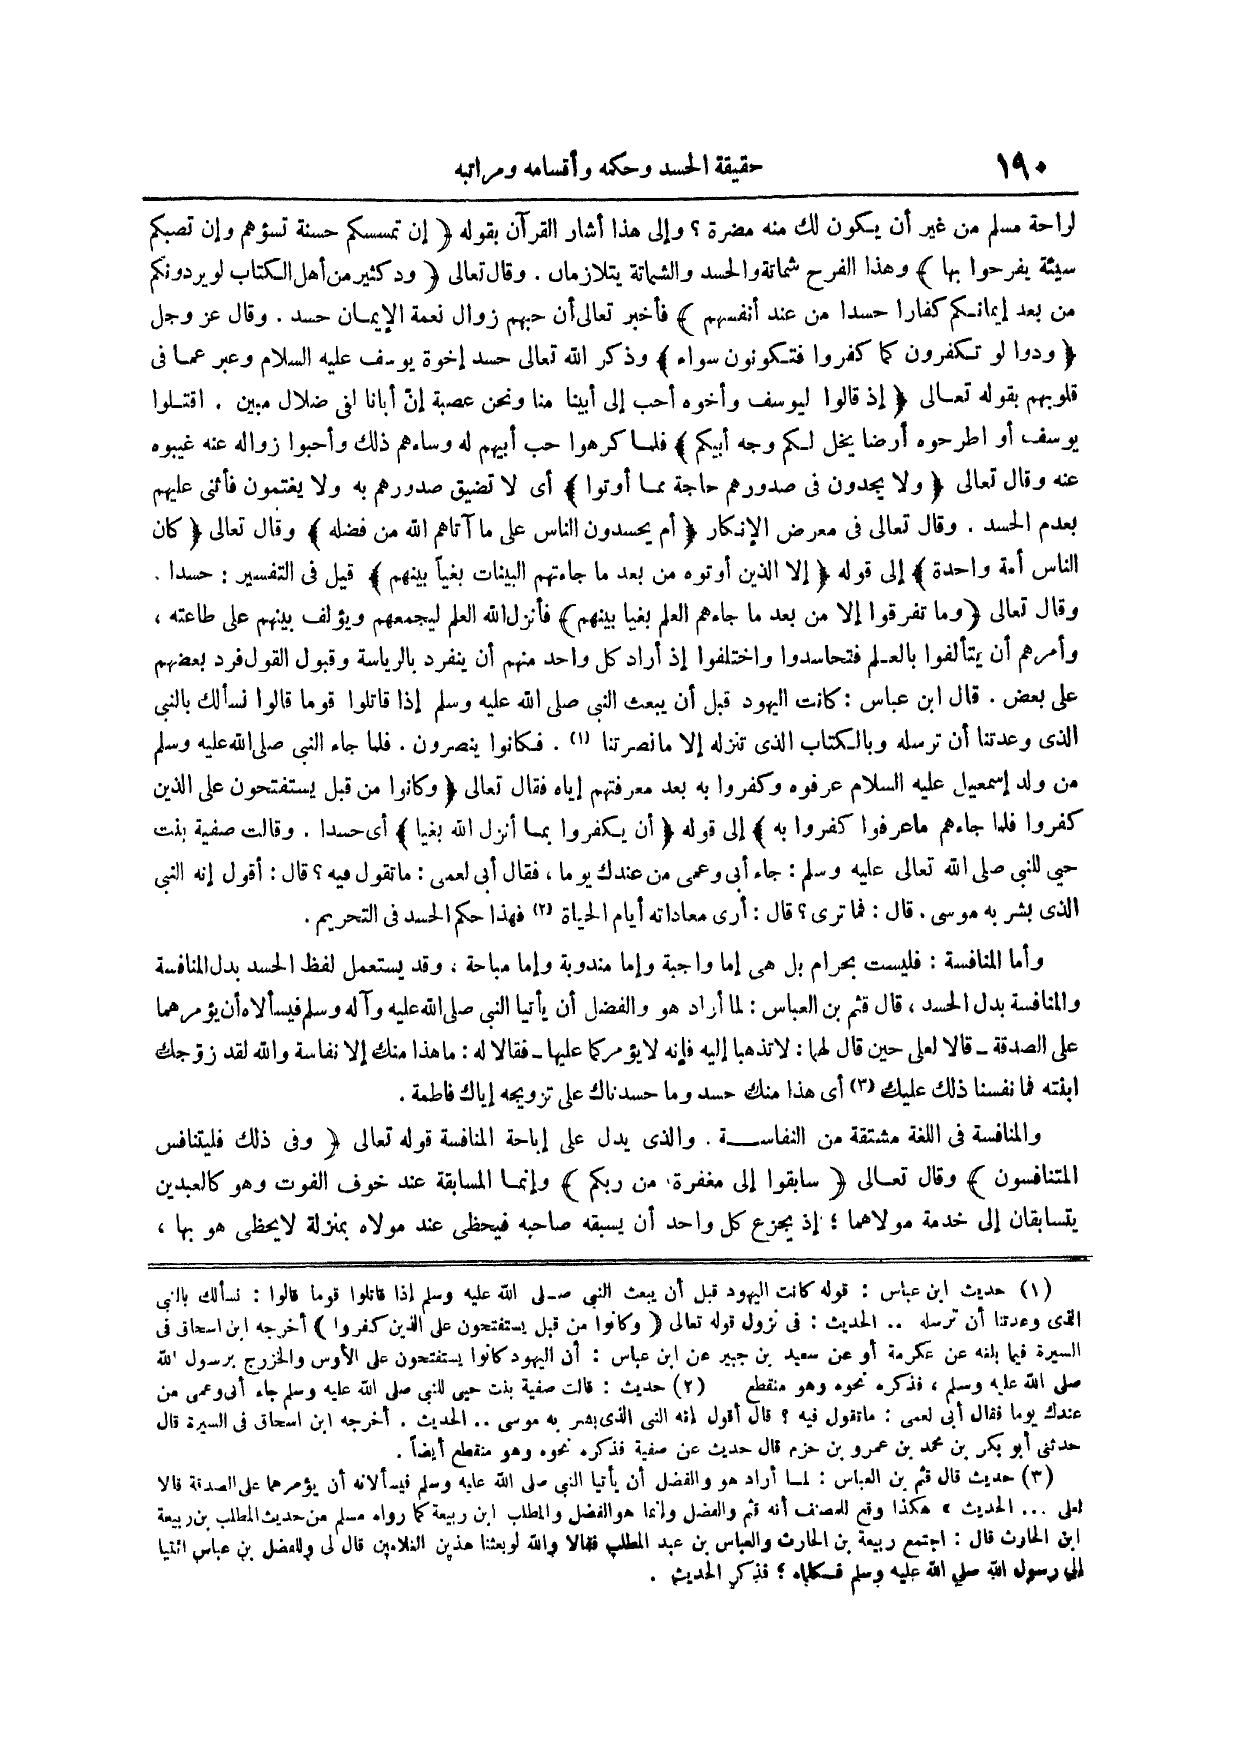 ١٩٠
حقيقة الحسد وحكمه وأقسامه ومراتبه
لراحة مسلم من غير أن يكون لك منه مضرة ؟ وإلى هذا أشار القرآن بقوله ﴿ إن تمسسكم حسنة تسؤهم وإن تصبكم
سيئة يفرحوا بها ﴾ وهذا الفرح شماتة والحسد والشماتة يتلازمان . وقال تعالى ﴿ ود كثير من أهل الكتاب لو يردونكم
من بعد إيمانكم كفارا حسدا من عند أنفسهم ﴾ فأخبر تعالى أن حبهم زوال نعمة الإيمان حسد . وقال عز وجل
﴿ ودوا لو تكفرون كما كفروا فتكونون سواء ﴾ وذكر الله تعالى حسد إخوة يوسف عليه السلام وعبر عما فى
قلوبهم بقوله تعالى ﴿ إذ قالوا ليوسف وأخوه أحب إلى أبينا منا ونحن عصبة إنّ أبانا لفى ضلال مبين . اقتلوا
يوسف أو اطرحوه أرضا يخل لكم وجه أبيكم ﴾ فلما كرهوا حب أبيهم له وساءهم ذلك وأحبوا زواله عنه غيبوه
عنه وقال تعالى ﴿ ولا يجدون فى صدورهم حاجة مما أوتوا ﴾ أى لا تضيق صدورهم به ولا يغتمون فأثنى عليهم
بعدم الحسد . وقال تعالى فى معرض الإنكار ﴿ أم يحسدون الناس على ما آتاهم الله من فضله ﴾ وقال تعالى ﴿ كان
الناس أمة واحدة ﴾ إلى قوله ﴿ إلا الذين أوتوه من بعد ما جاءتهم البينات بغياً بينهم ﴾ قيل فى التفسير : حسدا .
وقال تعالى ﴿ وما تفرقوا إلا من بعد ما جاءهم العلم بغيا بينهم ﴾ فأنزل الله العلم ليجمعهم ويؤلف بينهم على طاعته ،
وأمرهم أن يتألفوا بالعلم فتحاسدوا واختلفوا إذ أراد كل واحد منهم أن ينفرد بالرياسة وقبول القول فرد بعضهم
على بعض . قال ابن عباس : كانت اليهود قبل أن يبعث النبى صلى الله عليه وسلم إذا قاتلوا قوما قالوا نسألك بالنبى
الذى وعدتنا أن ترسله وبالكتاب الذى تنزله إلا ما نصرتنا (١) . فكانوا ينصرون . فلما جاء النبى صلى الله عليه وسلم
من ولد إسمعيل عليه السلام عرفوه وكفروا به بعد معرفتهم إياه فقال تعالى ﴿ وكانوا من قبل يستفتحون على الذين
كفروا فلما جاءهم ما عرفوا كفروا به ﴾ إلى قوله ﴿ أن يكفروا بما أنزل الله بغيا ﴾ أى حسدا . وقالت صفية بنت
حيي للنبى صلى الله تعالى عليه وسلم : جاء أبى وعمى من عندك يوما ، فقال أبى لعمى : ما تقول فيه ؟ قال : أقول إنه النبى
الذى بشر به موسى . قال : فما ترى ؟ قال : أرى معاداته أيام الحياة (٢) فهذا حكم الحسد فى التحريم .
وأما المنافسة : فليست بحرام بل هى إما واجبة وإما مندوبة وإما مباحة ، وقد يستعمل لفظ الحسد بدل المنافسة
والمنافسة بدل الحسد ، قال قثم بن العباس : لما أراد هو والفضل أن يأتيا النبى صلى الله عليه وآله وسلم فيسألاه أن يؤمرهما
على الصدقة ــ قالا لعلى حين قال لهما : لا تذهبا إليه فإنه لا يؤمركما عليها ــ فقالا له : ما هذا منك إلا نفاسة والله لقد زوّجك
ابنته فما نفسنا ذلك عليك (٣) أى هذا منك حسد وما حسدناك على تزويجه إياك فاطمة .
والمنافسة فى اللغة مشتقة من النفاسة . والذى يدل على إباحة المنافسة قوله تعالى ﴿ وفى ذلك فليتنافس
المتنافسون ﴾ وقال تعالى ﴿ سابقوا إلى مغفرة من ربكم ﴾ وإنما المسابقة عند خوف الفوت وهو كالعبدين
يتسابقان إلى خدمة مولاهما ؛ إذ يجزع كل واحد أن يسبقه صاحبه فيحظى عند مولاه بمنزلة لا يحظى هو بها ،
(١) حديث ابن عباس : قوله كانت اليهود قبل أن يبعث النبي صلى الله عليه وسلم إذا قاتلوا قوما قالوا : نسألك بالنبى
الذى وعدتنا أن ترسله .. الحديث : فى نزول قوله تعالى ﴿ وكانوا من قبل يستفتحون على الذين كفروا ﴾ أخرجه ابن اسحاق فى
السيرة فيما بلغه عن عكرمة أو عن سعيد بن جبير عن ابن عباس : أن اليهود كانوا يستفتحون على الأوس والخزرج برسول الله
صلى الله عليه وسلم ، فذكره نحوه وهو منقطع (٢) حديث : قالت صفية بنت حيى للنبى صلى الله عليه وسلم جاء أبى وعمى من
عندك يوما فقال أبى لعمى : ما تقول فيه ؟ قال أقول إنه النبى الذى بشر به موسى .. الحديث . أخرجه ابن اسحاق فى السيرة قال
حدثنى أبو بكر بن محمد بن عمرو بن حزم قال حديث عن صفية فذكره نحوه وهو منقطع أيضاً .
(٣) حديث قال قثم بن العباس : لما أراد هو والفضل أن يأتيا النبي صلى الله عليه وسلم فيسألانه أن يؤمرهما على الصدقة قالا
لعلى ... الحديث » هكذا وقع للمصنف أنه قثم والفضل وإنما هو الفضل والمطلب ابن ربيعة كما رواه مسلم من حديث المطلب بن ربيعة
ابن الحارث قال : اجتمع ربيعة بن الحارث والعباس بن عبد المطلب فقالا والله لو بعثنا هذين الغلامين قال لى وللفضل بن عباس ائتيا
إلى رسول الله صلى الله عليه وسلم فكلماه ؛ فذكر الحديث .